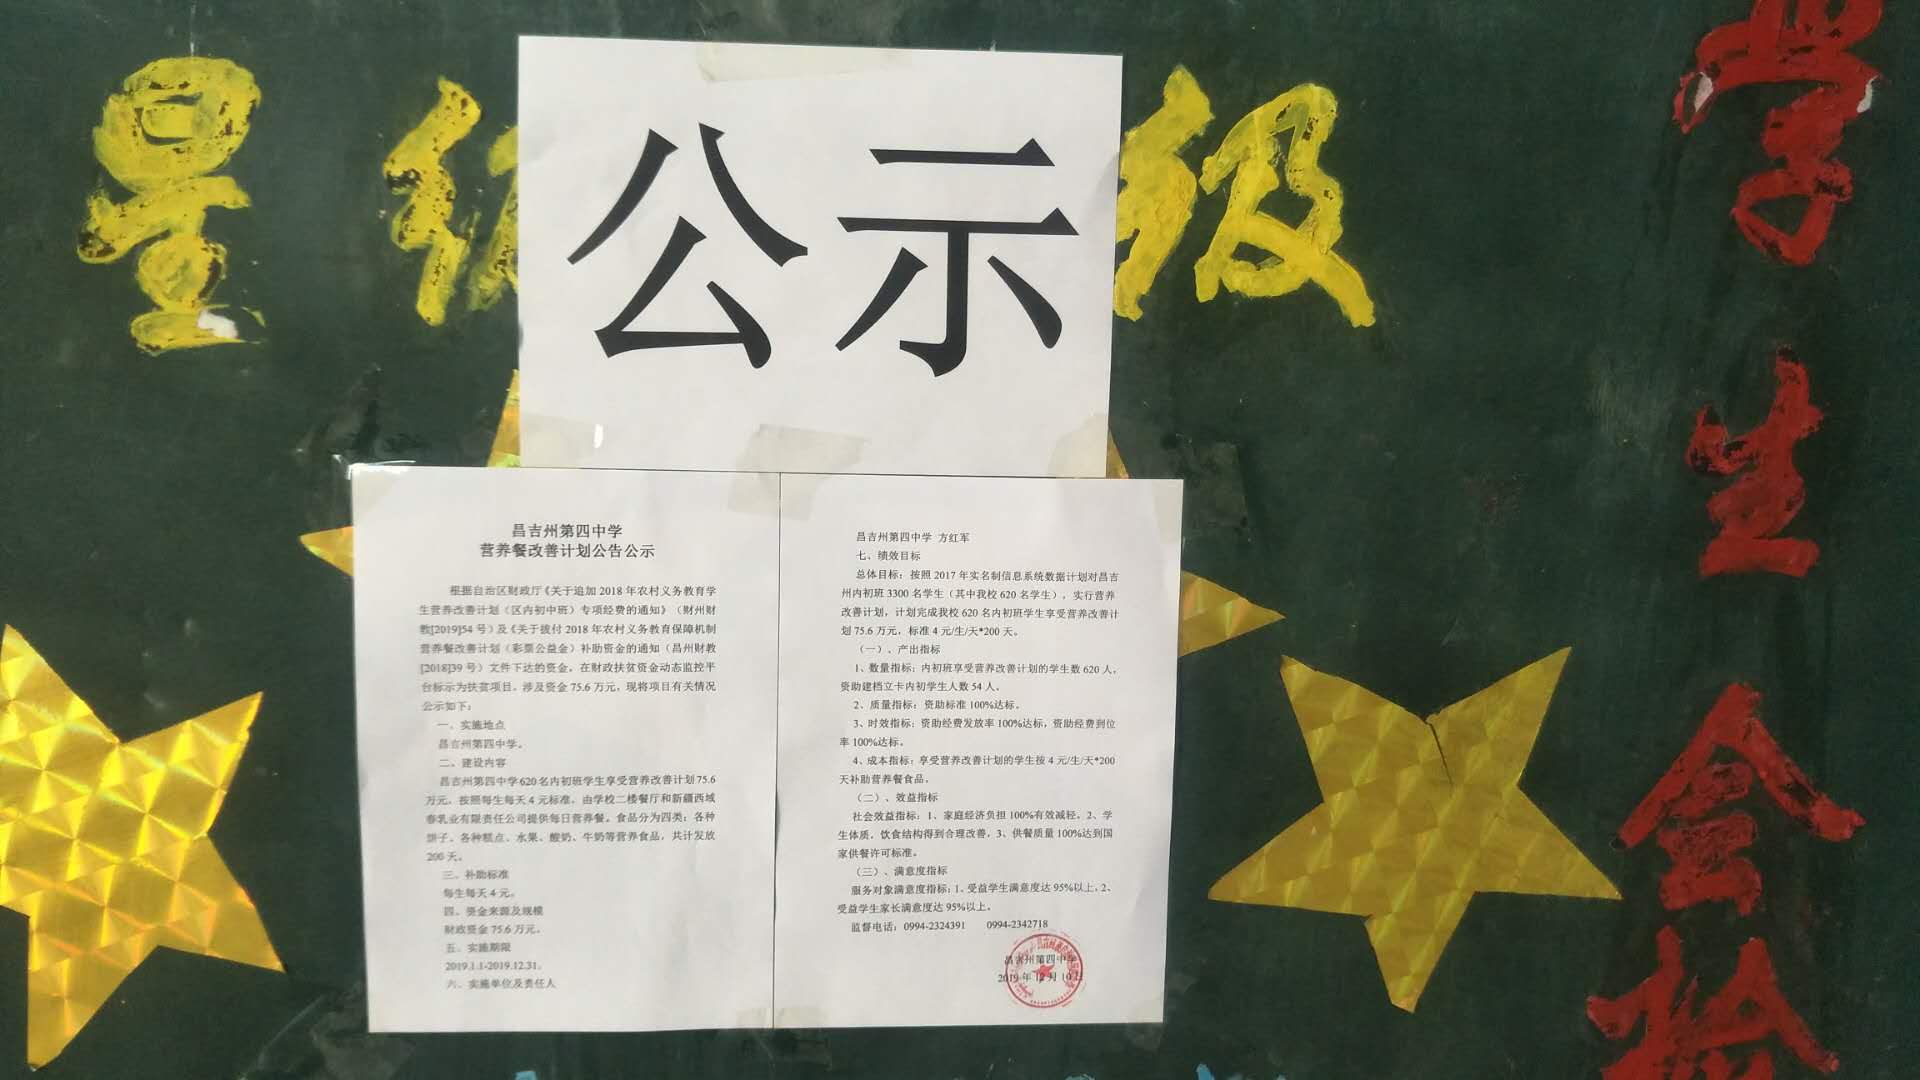 星级
级
公示
昌吉州第四中学
营养餐改善计划公告公示
根据自治区财政厅《关于追加2018年农村义务教育学
生营养改善计划（区内初中班）专项经费的通知》（财州财
教[2019]54号）及《关于拨付2018年农村义务教育保障机制
营养餐改善计划（彩票公益金）补助资金的通知（昌州财教
[2018]39号）文件下达的资金，在财政扶贫资金动态监控平
台标示为扶贫项目，涉及资金75.6万元，现将项目有关情况
公示如下：
一、实施地点
昌吉州第四中学。
二、建设内容
昌吉州第四中学620名内初班学生享受营养改善计划75.6
万元，按照每生每天4元标准，由学校二楼餐厅和新疆西域
春乳业有限责任公司提供每日营养餐。食品分为四类：各种
饼子、各种糕点、水果、酸奶、牛奶等营养食品，共计发放
200天。
三、补助标准
每生每天4元。
四、资金来源及规模
财政资金75.6万元。
五、实施期限
2019.1.1-2019.12.31。
六、实施单位及责任人
昌吉州第四中学 方红军
七、绩效目标
总体目标：按照2017年实名制信息系统数据计划对昌吉
州内初班3300名学生（其中我校620名学生），实行营养
改善计划，计划完成我校620名内初班学生享受营养改善计
划75.6万元，标准4元/生/天*200天。
（一）、产出指标
1、数量指标：内初班享受营养改善计划的学生数620人，
资助建档立卡内初学生人数54人。
2、质量指标：资助标准100%达标。
3、时效指标：资助经费发放率100%达标，资助经费到位
率100%达标。
4、成本指标：享受营养改善计划的学生按4元/生/天*200
天补助营养餐食品。
（二）、效益指标
社会效益指标：1、家庭经济负担100%有效减轻。2、学
生体质，饮食结构得到合理改善，3、供餐质量100%达到国
家供餐许可标准。
（三）、满意度指标
服务对象满意度指标：1、受益学生满意度达95%以上，2、
受益学生家长满意度达95%以上。
监督电话：0994-2324391 0994-2342718
昌吉州第四中学
2019年12月10日
学生会检